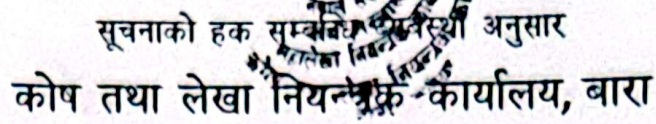 सूचनाको हक सम्बन्धि व्यवस्था अनुसार
कोष तथा लेखा नियन्त्रक कार्यालय, बारा